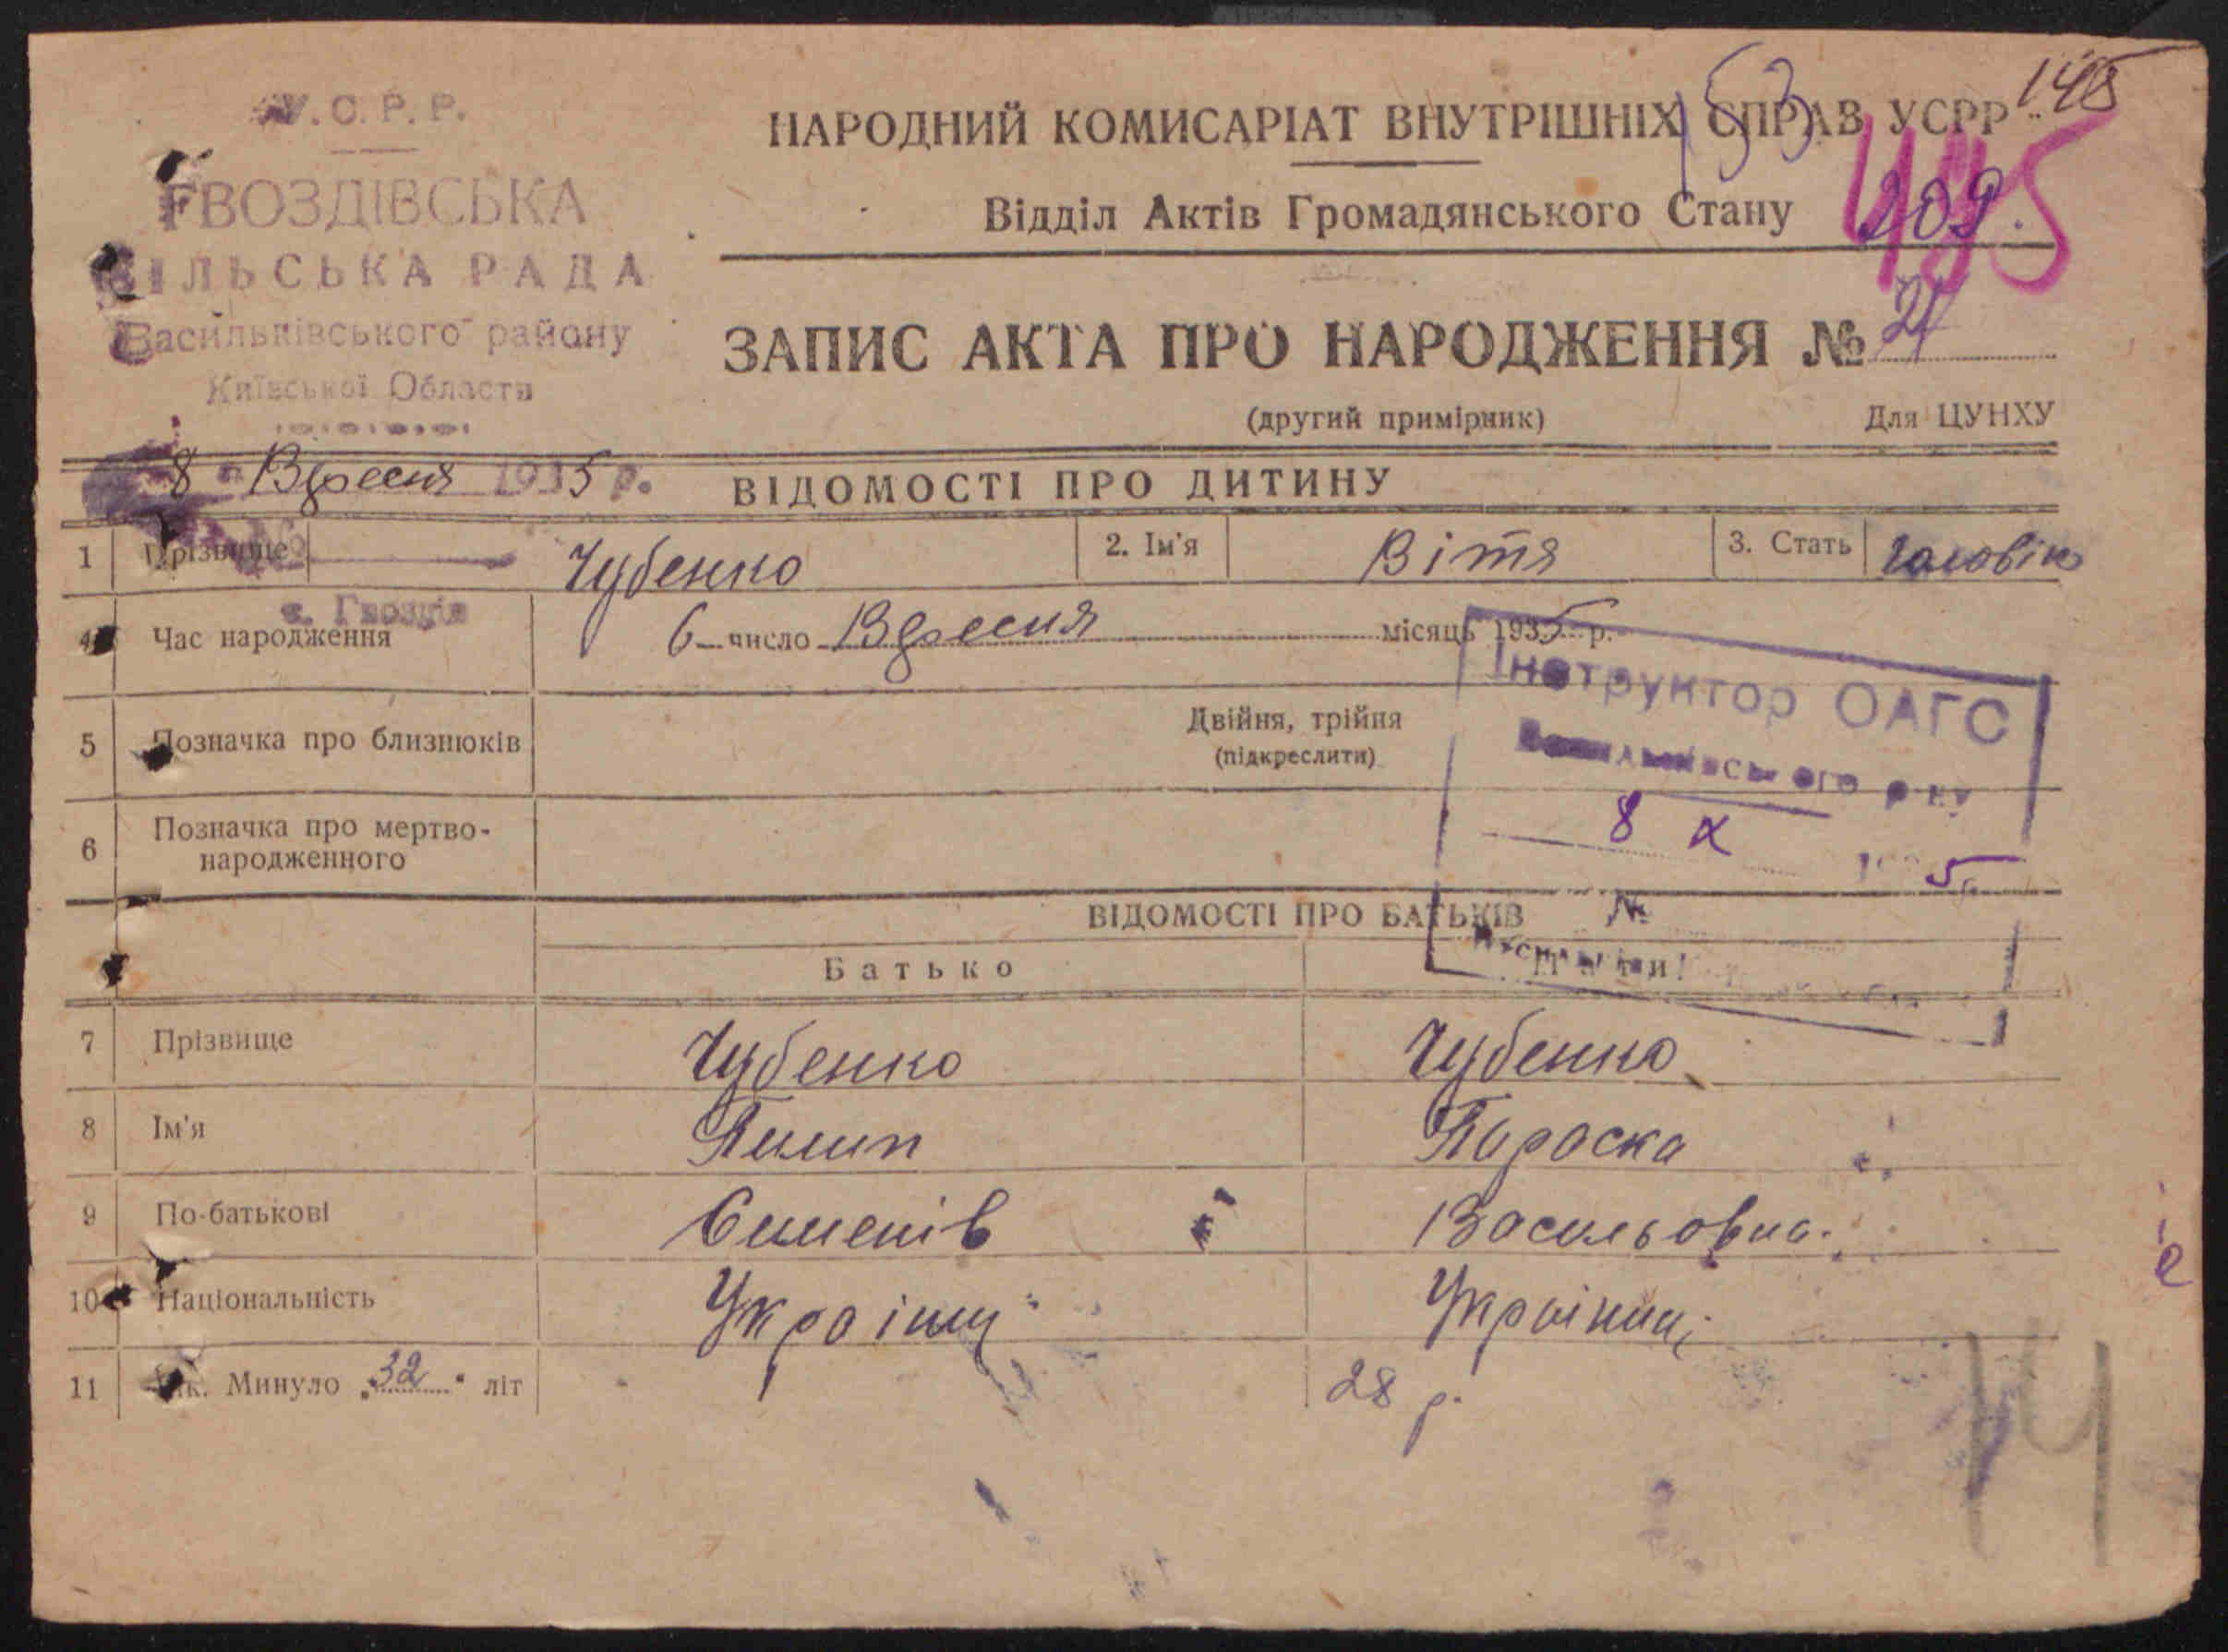 У.С.Р.Р.
ГВОЗДІВСЬКА
СІЛЬСЬКА РАДА
Васильківського району
Київської Области
8 Вересня 1935 р.
с. Гвоздів
153
145
НАРОДНИЙ КОМИСАРІАТ ВНУТРІШНІХ СПРАВ УСРР
445
Відділ Актів Громадянського Стану
209.
ЗАПИС АКТА ПРО НАРОДЖЕННЯ № 21
(другий примірник) Для ЦУНХУ
ВІДОМОСТІ ПРО ДИТИНУ
1 Прізвище Чубенко 2. Ім'я Вітя 3. Стать Чоловік
4 Час народження 6 число Вересня місяць 1935 р.
Інструктор ОАГС
Васильківського р-ну
8 X 5
№
5 Позначка про близнюків Двійня, трійня
(підкреслити)
6 Позначка про мертво-
народженного
ВІДОМОСТІ ПРО БАТЬКІВ
Батько
7 Прізвище Чубенко Чубенко
8 Ім'я Пилип Параска
9 По-батькові Семенів Васильовна.
10 Національність Україн Украінка
11 Вік. Минуло „32" літ 28 р.
14